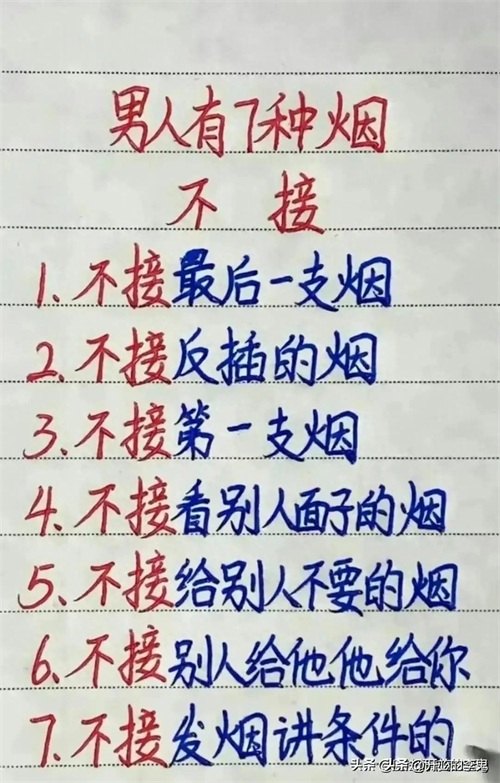 男人有7种烟
不接
1、不接最后一支烟
2、不接反插的烟
3、不接第一支烟
4、不接看别人面子的烟
5、不接给别人不要的烟
6、不接别人给他他给你
7、不接发烟讲条件的
头条